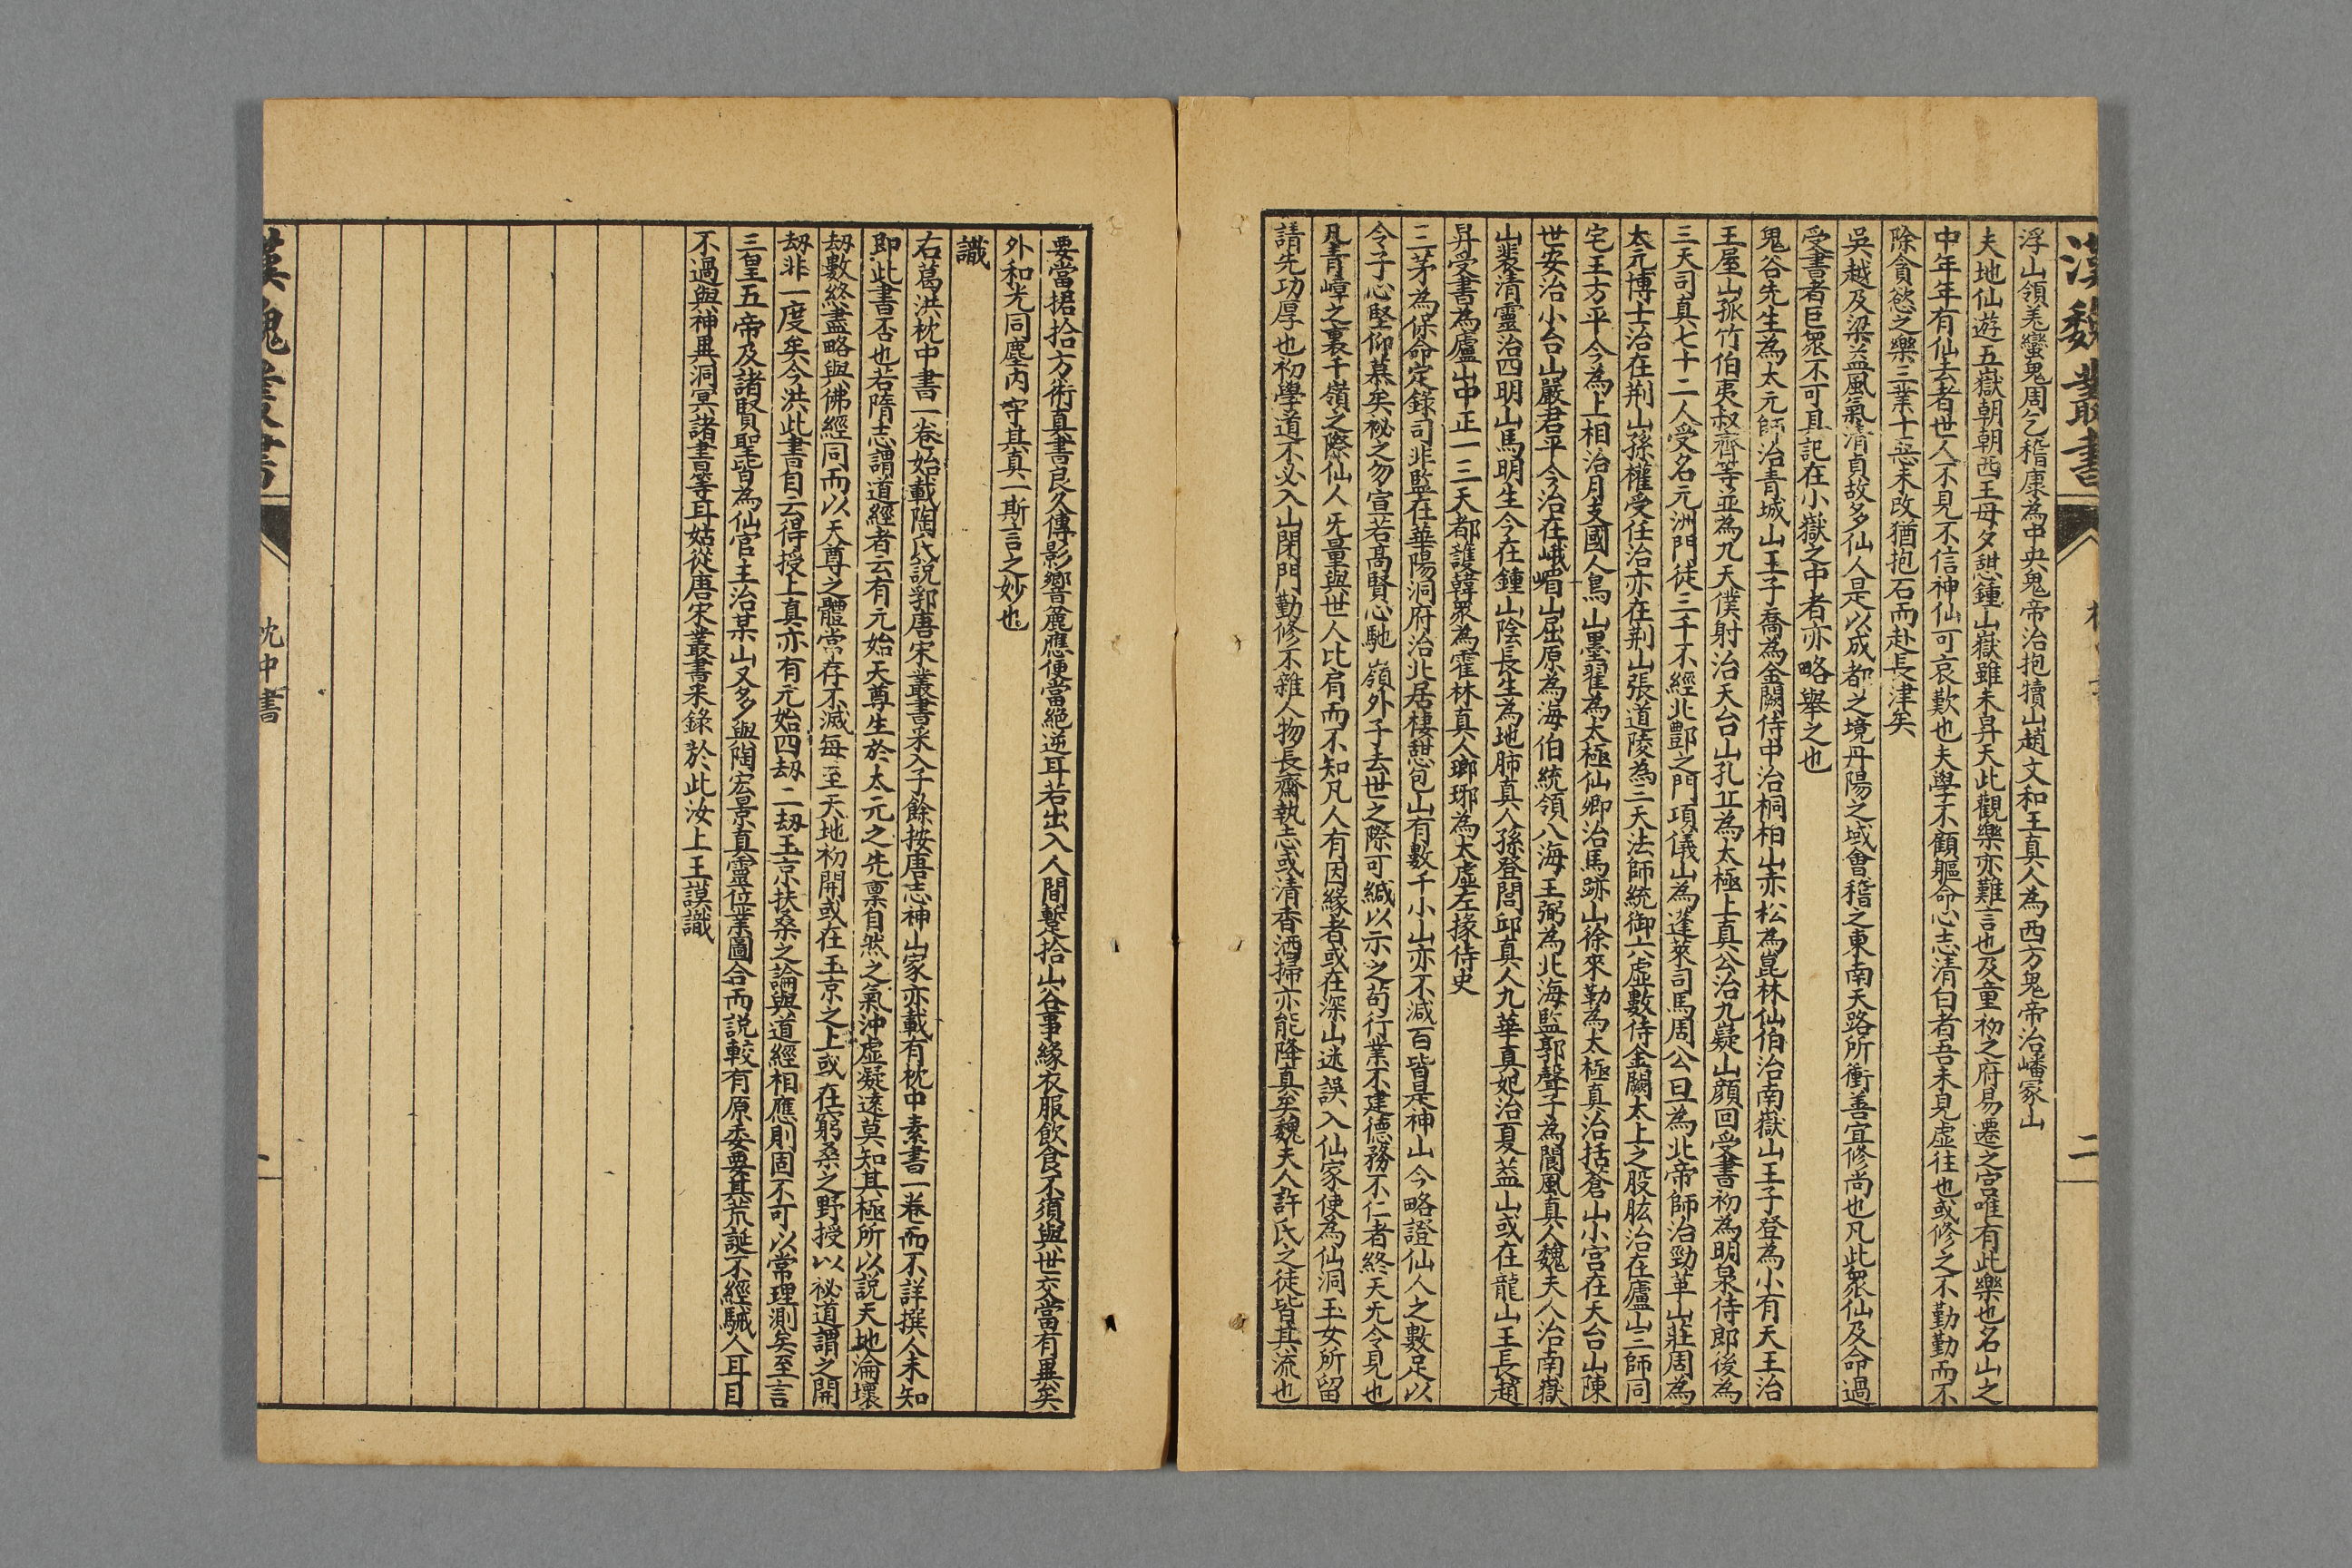 漢魏叢書
二
浮山領羌蠻鬼周乞稽康為中央鬼帝治抱犢山趙文和王真人為西方鬼帝治嶓冢山
夫地仙遊五嶽朝朝西王母夕憇鍾山嶽雖未昇天此觀樂亦難言也及童初之府易遷之宮唯有此樂也名山之
中年年有仙去者世人不見不信神仙可哀歎也夫學不顧軀命心志清白者吾未見虛往也或修之不勤勤而不
除貪慾之樂三業十惡未改猶抱石而赴長津矣
吳越及梁益風氣清貞故多仙人是以成都之境丹陽之域會稽之東南天路所衝善宜修尚也凡此衆仙及命過
受書者巨衆不可具記在小嶽之中者亦略舉之也
鬼谷先生為太元師治青城山王子喬為金闕侍中治桐柏山赤松為崑林仙伯治南嶽山王子登為小有天王治
王屋山孤竹伯夷叔齊等並為九天僕射治天台山孔丘為太極上真公治九嶷山顏回受書初為明泉侍郎後為
三天司真七十二人受名元洲門徒三千不經北酆之門項儀山為蓬萊司馬周公旦為北帝師治勁革山莊周為
太元博士治在荆山孫權受任治亦在荆山張道陵為三天法師統御六虛數侍金闕太上之股肱治在廬山三師同
宅王方平今為上相治月支國人鳥山墨翟為太極仙卿治馬跡山徐來勒為太極真治括蒼山小宮在天台山陳
世安治小台山嚴君平今治在峨嵋山屈原為海伯統領八海王弼為北海監郭聲子為閬風真人魏夫人治南嶽
山裴清靈治四明山馬明生今在鍾山陰長生為地肺真人孫登閭邱真人九華真妃治夏葢山或在龍山王長趙
昇受書為廬山中正一三天都護韓衆為霍林真人瑯琊為太虛左掾侍史
三茅為保命定錄司非監在華陽洞府治北居棲憇包山有數千小山亦不減百皆是神山今略證仙人之數足以
令子心堅仰慕矣祕之勿宣若髙賢心馳嶺外子去世之際可緘以示之苟行業不建德務不仁者終天无令見也
凡青嶂之裏千嶺之際仙人旡量與世人比肩而不知凡人有因緣者或在深山迷誤入仙家使為仙洞玉女所留
請先功厚也初學道不必入山閉門勤修不雜人物長齋執志或清香洒掃亦能降真矣魏夫人許氏之徒皆其流也
要當捃拾方術真書良久傳影響麄應便當絶逆耳若出入人間蹔拾山谷事緣衣服飲食不須與世交當有異矣
外和光同塵内守其真一斯言之妙也
識
右葛洪枕中書一卷始載陶氏説郛唐宋叢書采入子餘按唐志神山家亦載有枕中素書一卷而不詳撰人未知
即此書否也若隋志謂道經者云有元始天尊生於太元之先稟自然之氣沖虛凝遠莫知其極所以説天地淪壞
刼數終盡略與佛經同而以天尊之體常存不滅每至天地初開或在玉京之上或在窮桑之野授以祕道謂之開
刼非一度矣今洪此書自云得授上真亦有元始四刼二刼王京扶桑之論與道經相應則固不可以常理測矣至言
三皇五帝及諸賢聖皆為仙官主治某山又多與陶宏景真靈位業圖合而説較有原委要其荒誕不經駴人耳目
不過與神異洞冥諸書等耳姑從唐宋叢書釆錄於此汝上王謨識
漢魏叢書
枕中書